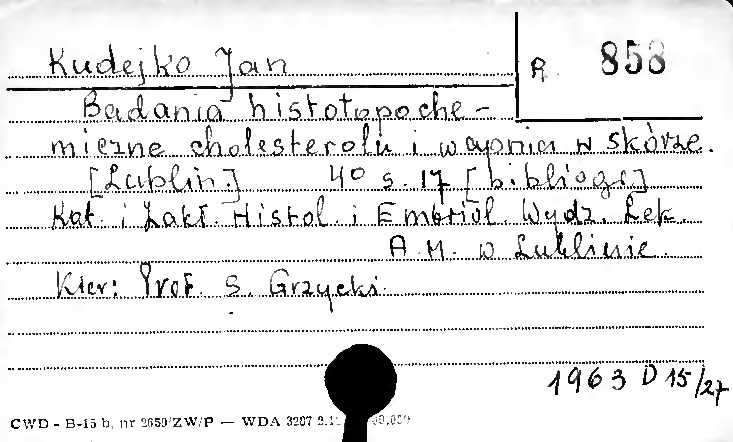 Kudejko Jan
A 858
Badania histotopoche-
miczne cholesterolu i wapnia w skórze.
[Lublin.] 4° s. 17 [b. bibliogr.]
Kat. i Zakł. Histol. i Embriol. Wydz. Lek.
A.M. w Lublinie.
Kier: Prof. S. Grzycki.
1963 D 15/27
CWD - B-15 b, nr 2650/ZW/P — WDA 3207